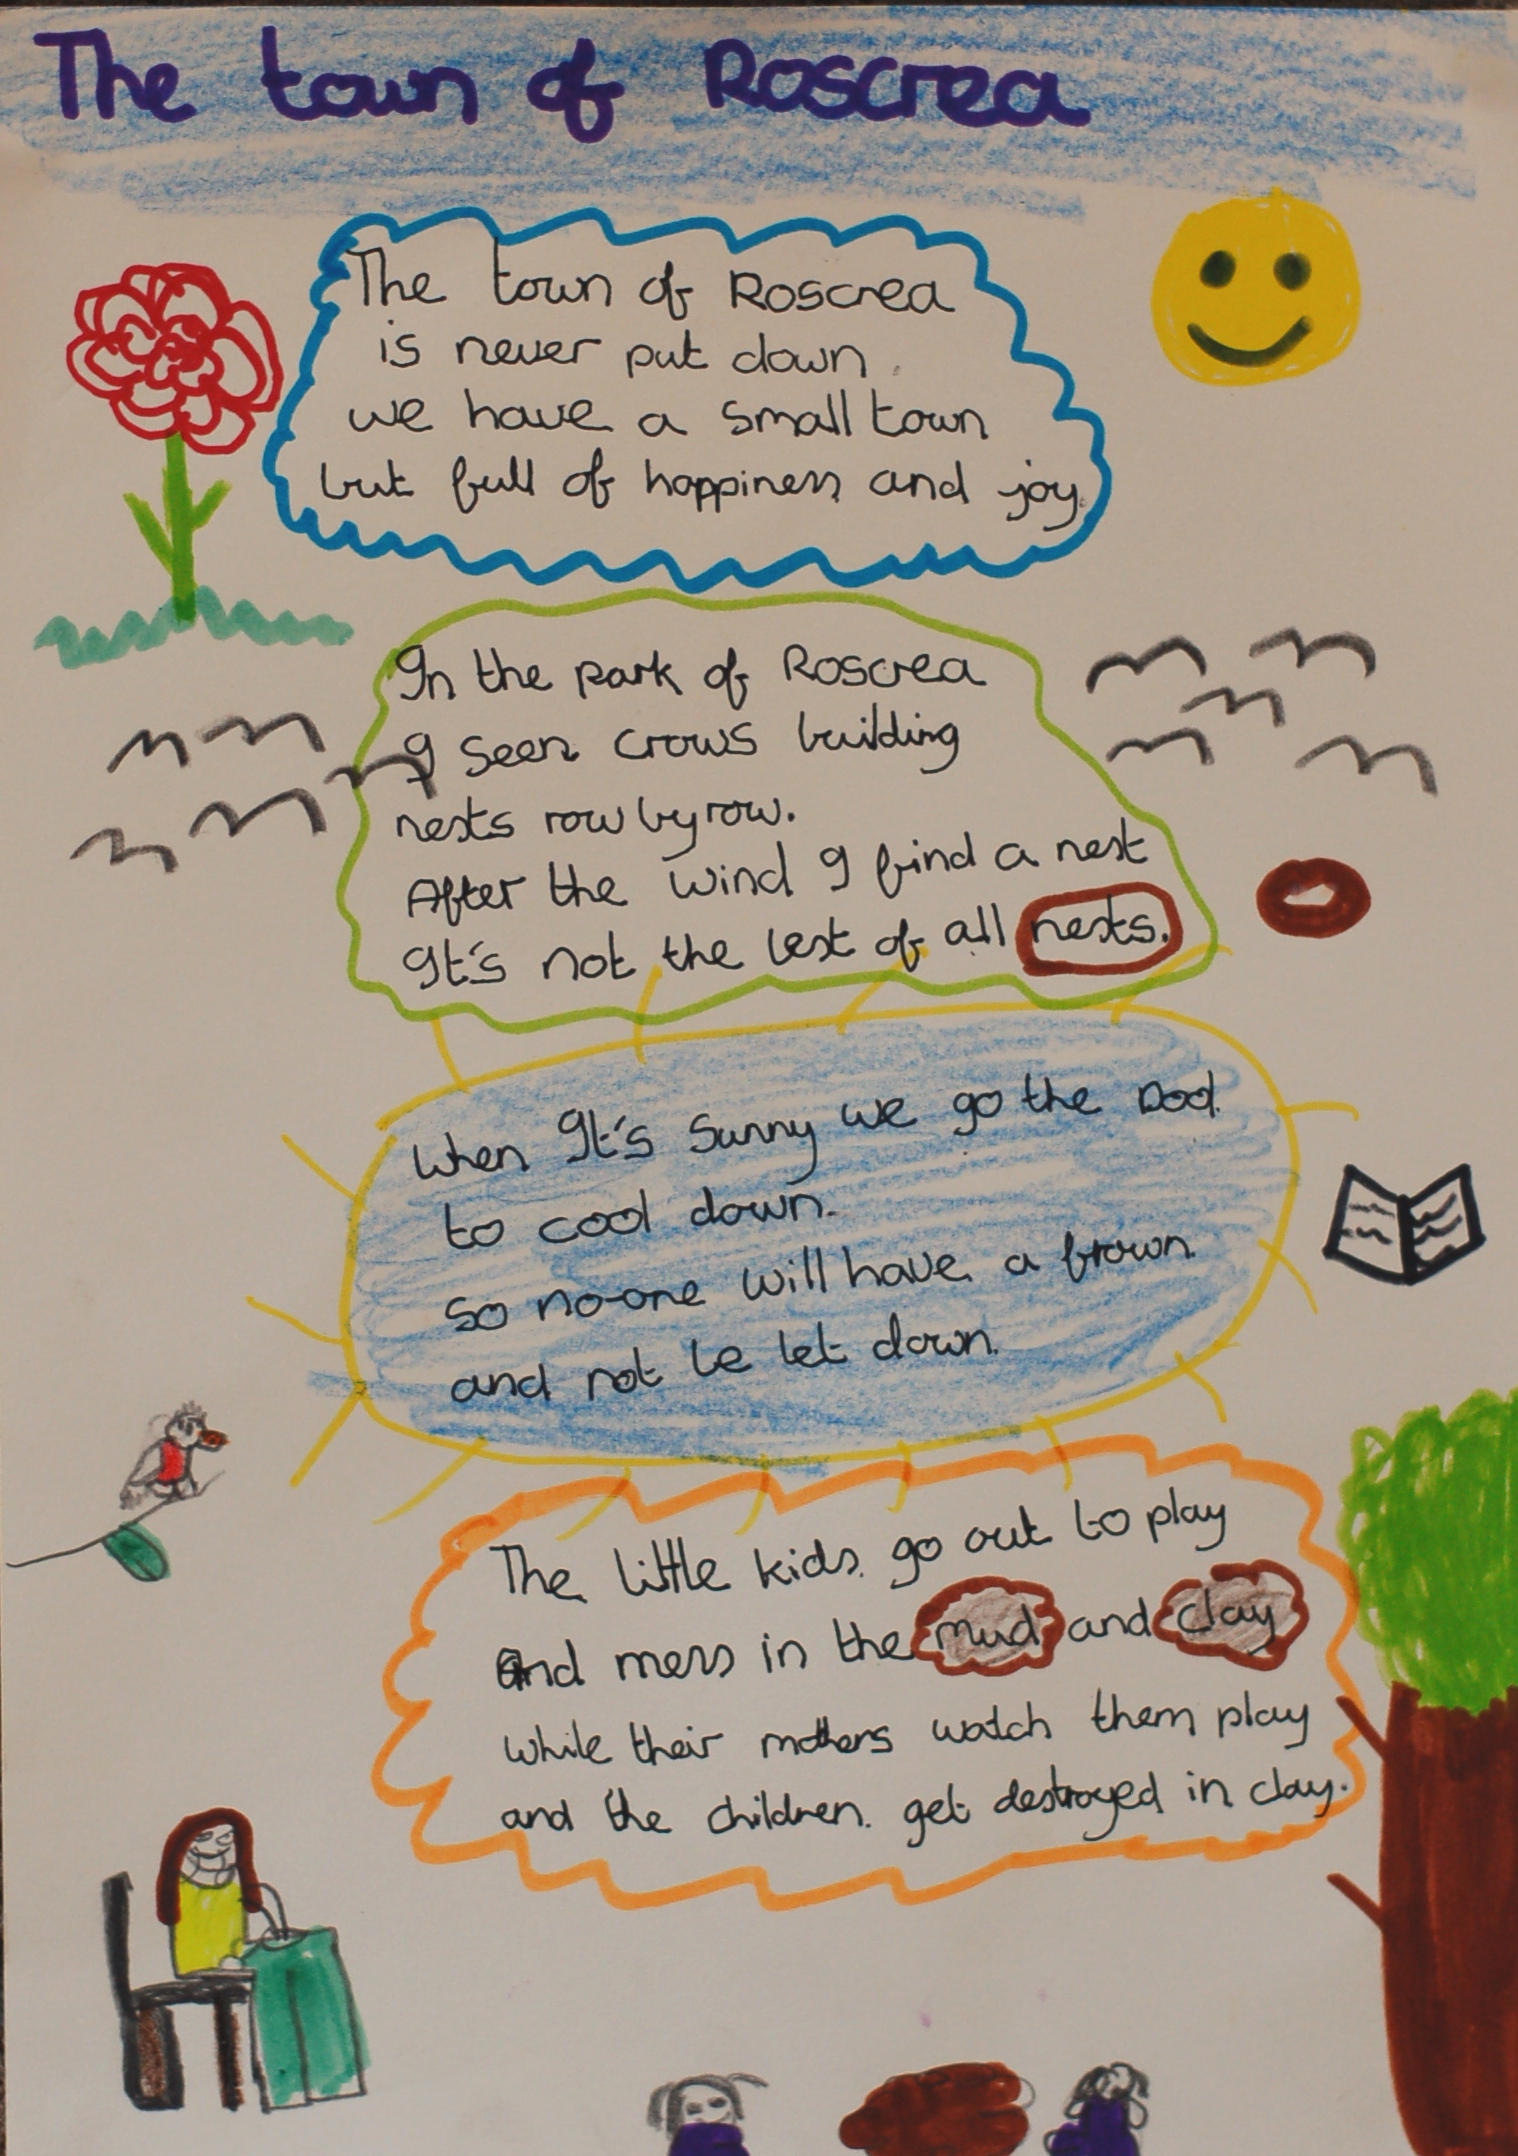 The town of Roscrea
The town of Roscrea
is never put down.
we have a small town
but full of happiness and joy.
In the park of Roscrea
I seen crows building
nests row by row.
After the wind I find a nest
It's not the best of all nests.
When It's Sunny we go the Pool
to cool down.
so no-one will have a frown
and not be let down.
The little kids go out to play
And mess in the mud and clay
while their mothers watch them play
and the children get destroyed in clay.